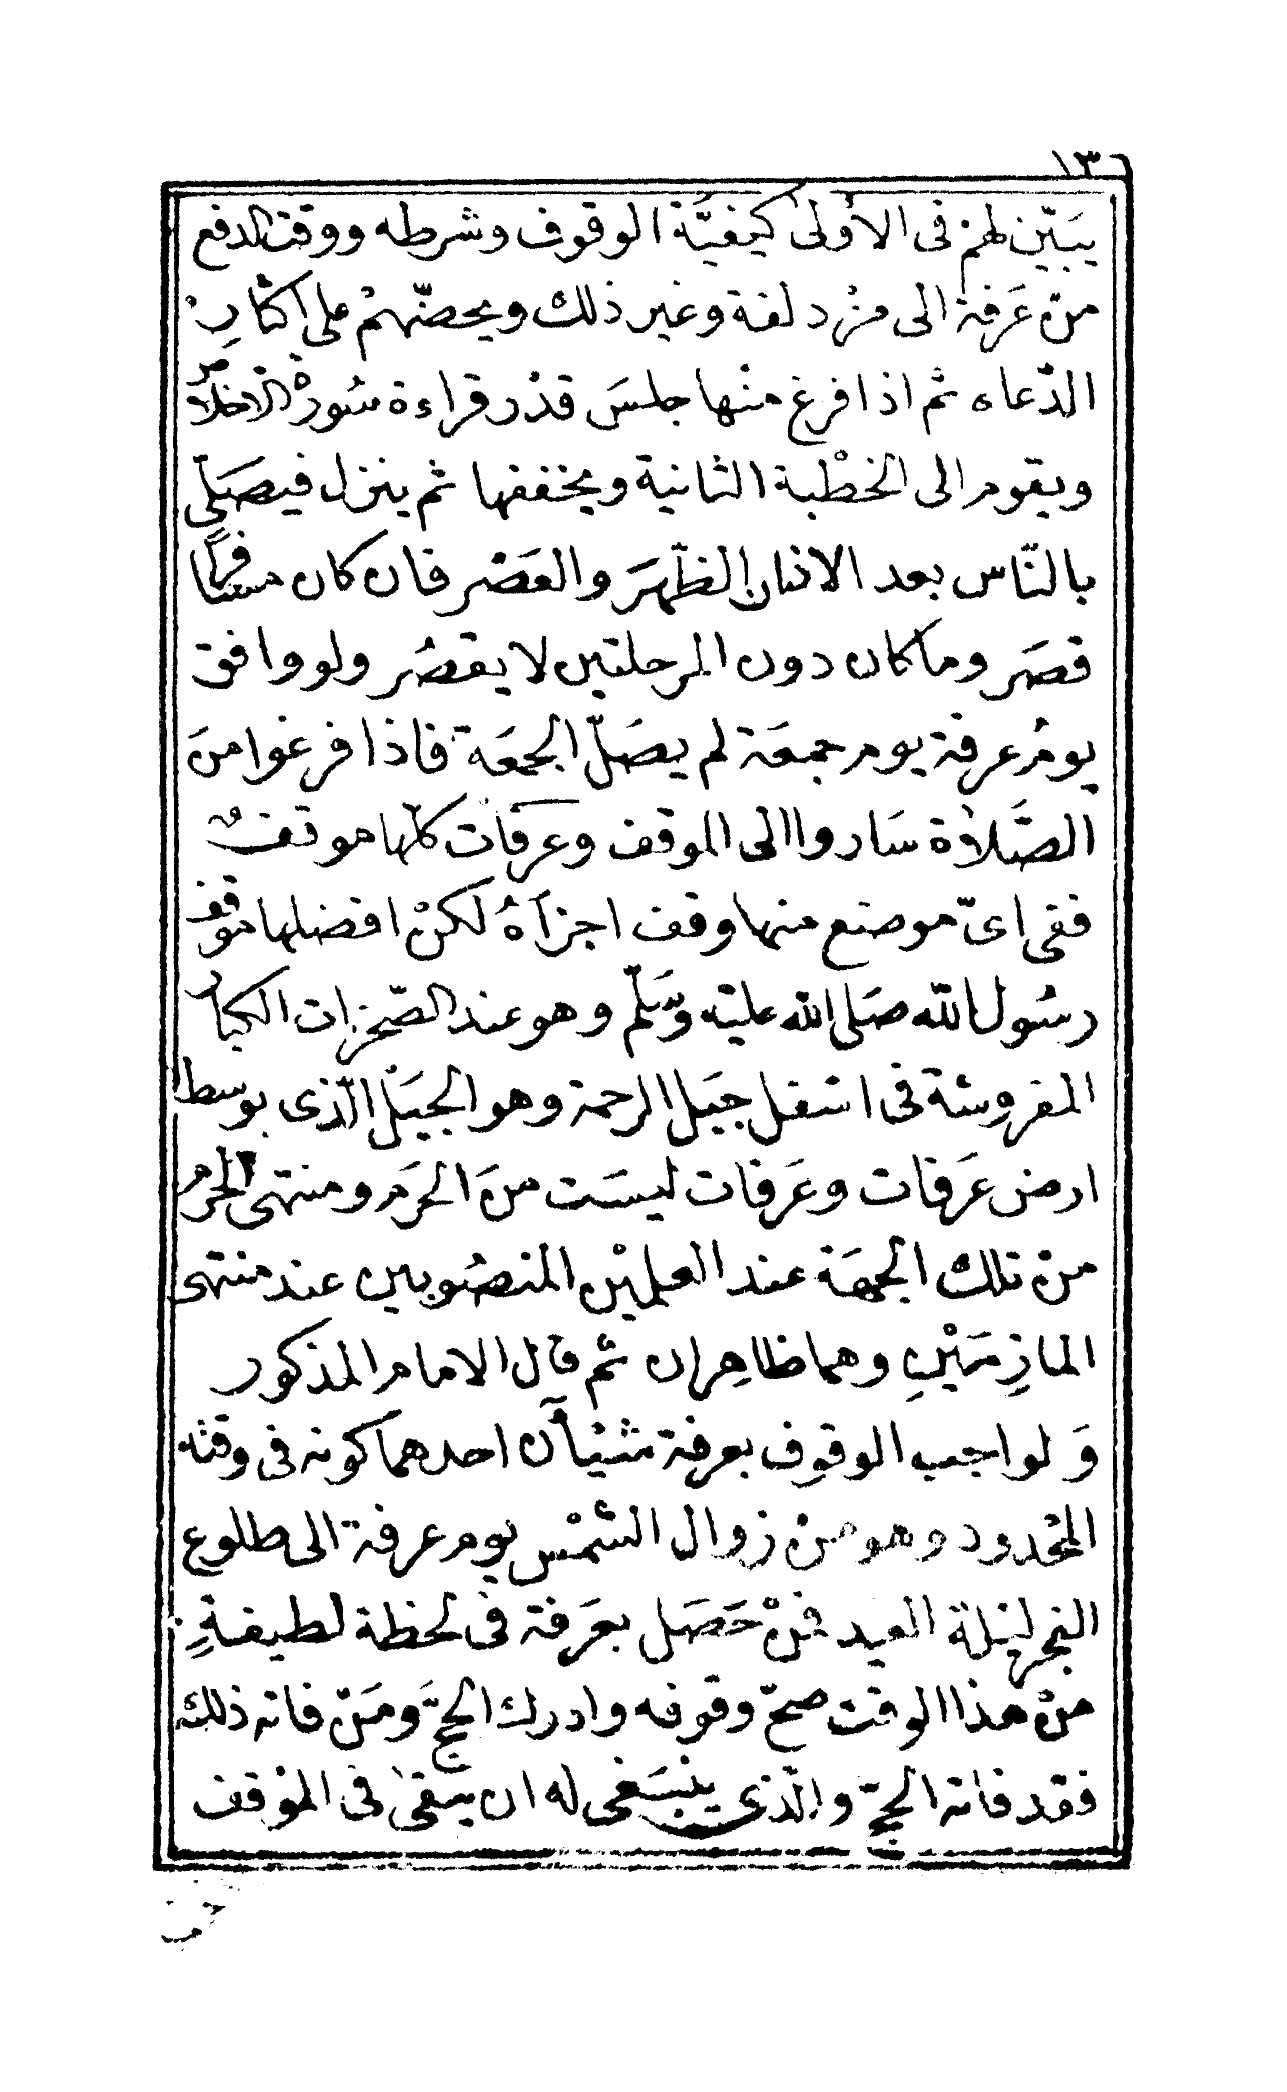 ١٣٦
يبَيّن لهمْ فى الأولىٰ كيفيَّة الوقوف وشرطه ووقت الدفع
منْ عَرفة الى مزْدلفة وغير ذلك ويحضّهمْ على اكثارِ
الدّعاء ثم اذا فرغ منْها جلسَ قدْر قراءة سُورةْ الاخلاص
ويقوم الى الخطْبة الثانية ويخففها ثم ينزل فيصَلّى
بالنّاس بعد الاذان الظّهرَ والعَصْر فان كان مسافرًا
قصَر وما كان دون المرحلتين لا يقصُر ولو وافق
يومُ عرفة يوم جمعَة لم يصَلّ الجمعَة فاذا فرغوا منَ
الصَّلاة سَاروا الى الموقف وعرفات كلّها موقفٌ
ففى اىّ موضع منها وقف اجزأهُ لكنْ افضلها موقف
رسُول الله صَلى الله عليْه وسَّلم وهو عند الصّخرَات الكبار
المفروشة فى اسْفل جبَل الرحمة وهو الجبَل الّذى بوسط
ارض عَرفات وعَرفات ليسَت منَ الحرَم ومنتهى الحرم
منْ تلك الجهَة عند العلميْن المنصُوبين عند منتهى
المازِمَيْنِ وهما ظاهِران ثم قال الامام المذكور
وَلواجب الوقوف بعرفة شيْأن احدهما كونه فى وقته
المحْدود وهو منْ زوال الشمْس يوم عرفة الى طلوع
الفجر ليْلة العيد فمنْ حَصَل بعَرفة فى لحظة لطيفةٍ
منْ هذا الوقت صحّ وقوفه وادرك الحجَّ ومَنْ فاته ذلك
فقد فاته الحجّ والّذى ينبَغى له ان يبقىٰ فى الموْقف